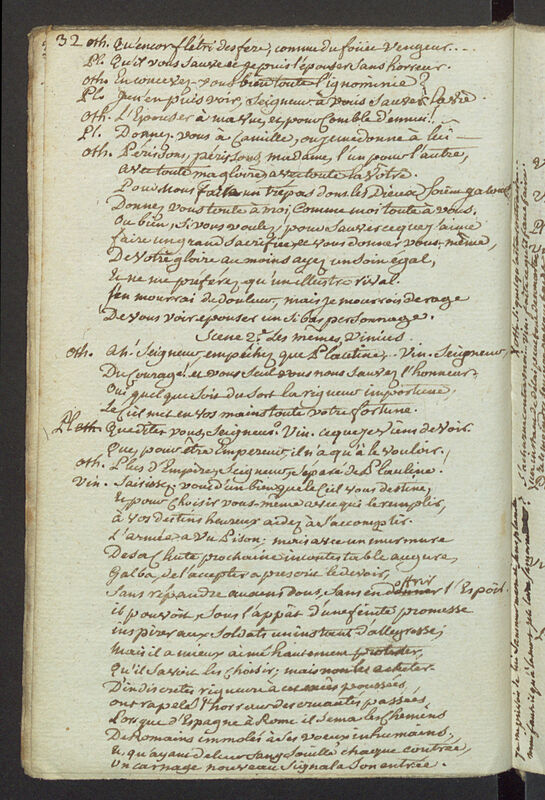 32
Oth. Qu'encor flétri des fers, comme du foüet vengeur....
Pl. Qu'il vous sauve et je puis l'épouser sans horreur.
Oth. En concevez-vous bien toute l'ignominie?
Pl. Je n'en puis voir, Seigneur, à vous sauver la vie.
Oth. L'Epouser à ma vue, et pour comble d'ennui!
Pl. Donnez-vous à Camille, ou je me donne à lui
Oth. Périssons, périssons, madame, l'un pour l'autre,
avec toute ma gloire, avec toute la vôtre.
Pour nous faire un trépas dont les Dieux soient jaloux
Donnez-vous toute à moi, comme moi toute à vous.
Ou bien, si vous voulez, pour sauver ce qu'il aime
faire un grand sacrifice et vous donner vous-même,
De votre gloire au moins ayez un soin égal,
Et ne me préférez qu'un illustre rival.
J'en mourrai de douleur, mais je mourrois de rage
De vous voir épouser un si bas personnage.
Scene 2.e Les mêmes, Vinius.
Oth. Ah! Seigneur, empêchez que Plautine. Vin. Seigneur
Du courage! et vous seul vous nous sauvez l'honneur.
Oui, quel que soit du sort la rigueur importune,
Le Ciel met en vos mains toute votre fortune.
Pl. Que dites-vous, Seigneur? Vin. ce que je viens de voir.
Que, pour être Empereur, il n'a qu'à le vouloir.
Oth. Plus d'Empire, Seigneur, séparé de Plautine.
Vin. Saisissez-vous d'un bien que le Ciel vous destine,
Et pour choisir vous-même avec qui le remplir,
à vos destins heureux aidez à s'accomplir.
L'armée a vu Pison, mais avec un murmure
De sa chute prochaine incontestable augure,
Galba de l'accepter a prescrit le devoir,
Sans répandre aucuns dons, sans en offrir l'Espoir.
il pouvoit, sous l'appât d'une feinte promesse
inspirer aux soldats un instant d'allegresse;
mais il a mieux aimé hautement protester,
Qu'il savoit les choisir, mais non les acheter.
D'indiscretes rigueurs à cet excès poussées,
ont rapelé l'horreur des cruautés passées,
Lorsque d'Espagne à Rome il sema les chemins
De Romains immolés à ses voeux inhumains,
Et qu'ayant de leur sang souillé chaque contrée,
un carnage nouveau signala son entrée.